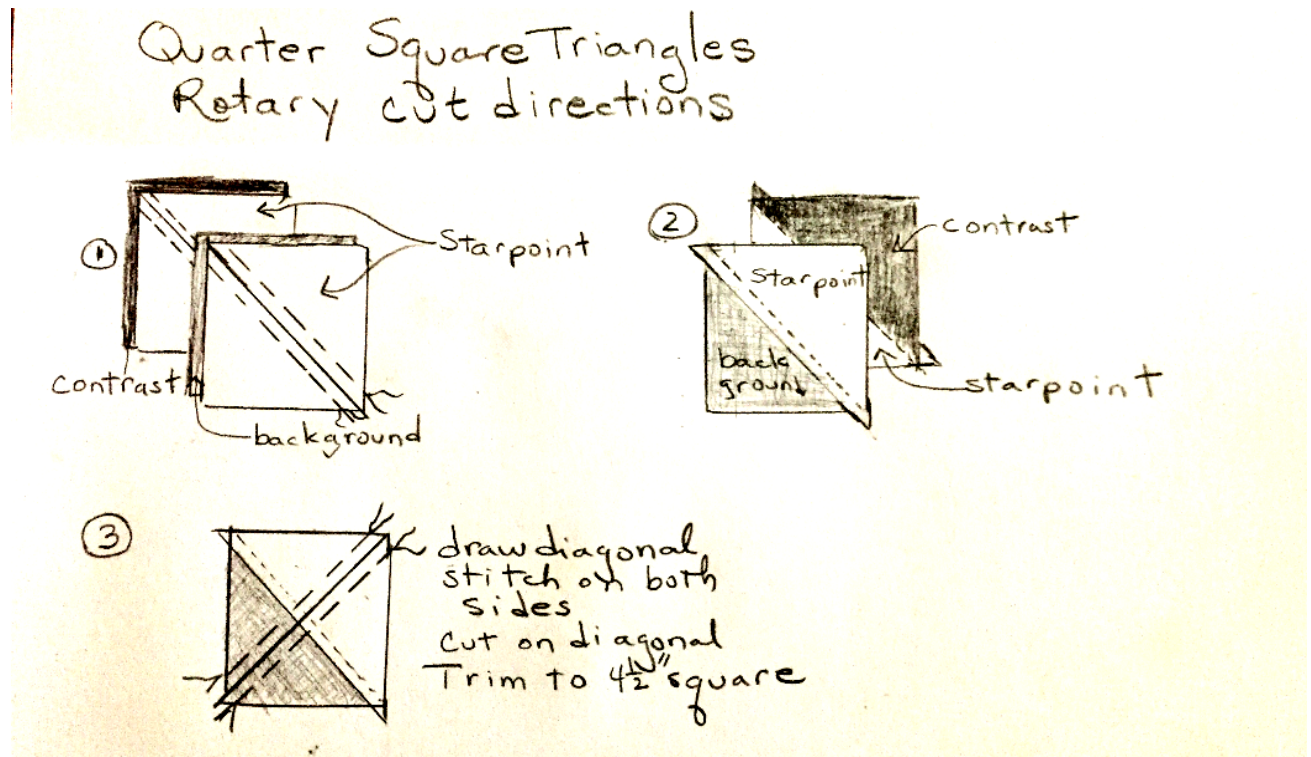 Quarter Square Triangles
Rotary cut directions
①
Starpoint
contrast
background
②
contrast
Starpoint
back
ground
starpoint
③
draw diagonal
stitch on both
sides
cut on diagonal
Trim to 4½" square